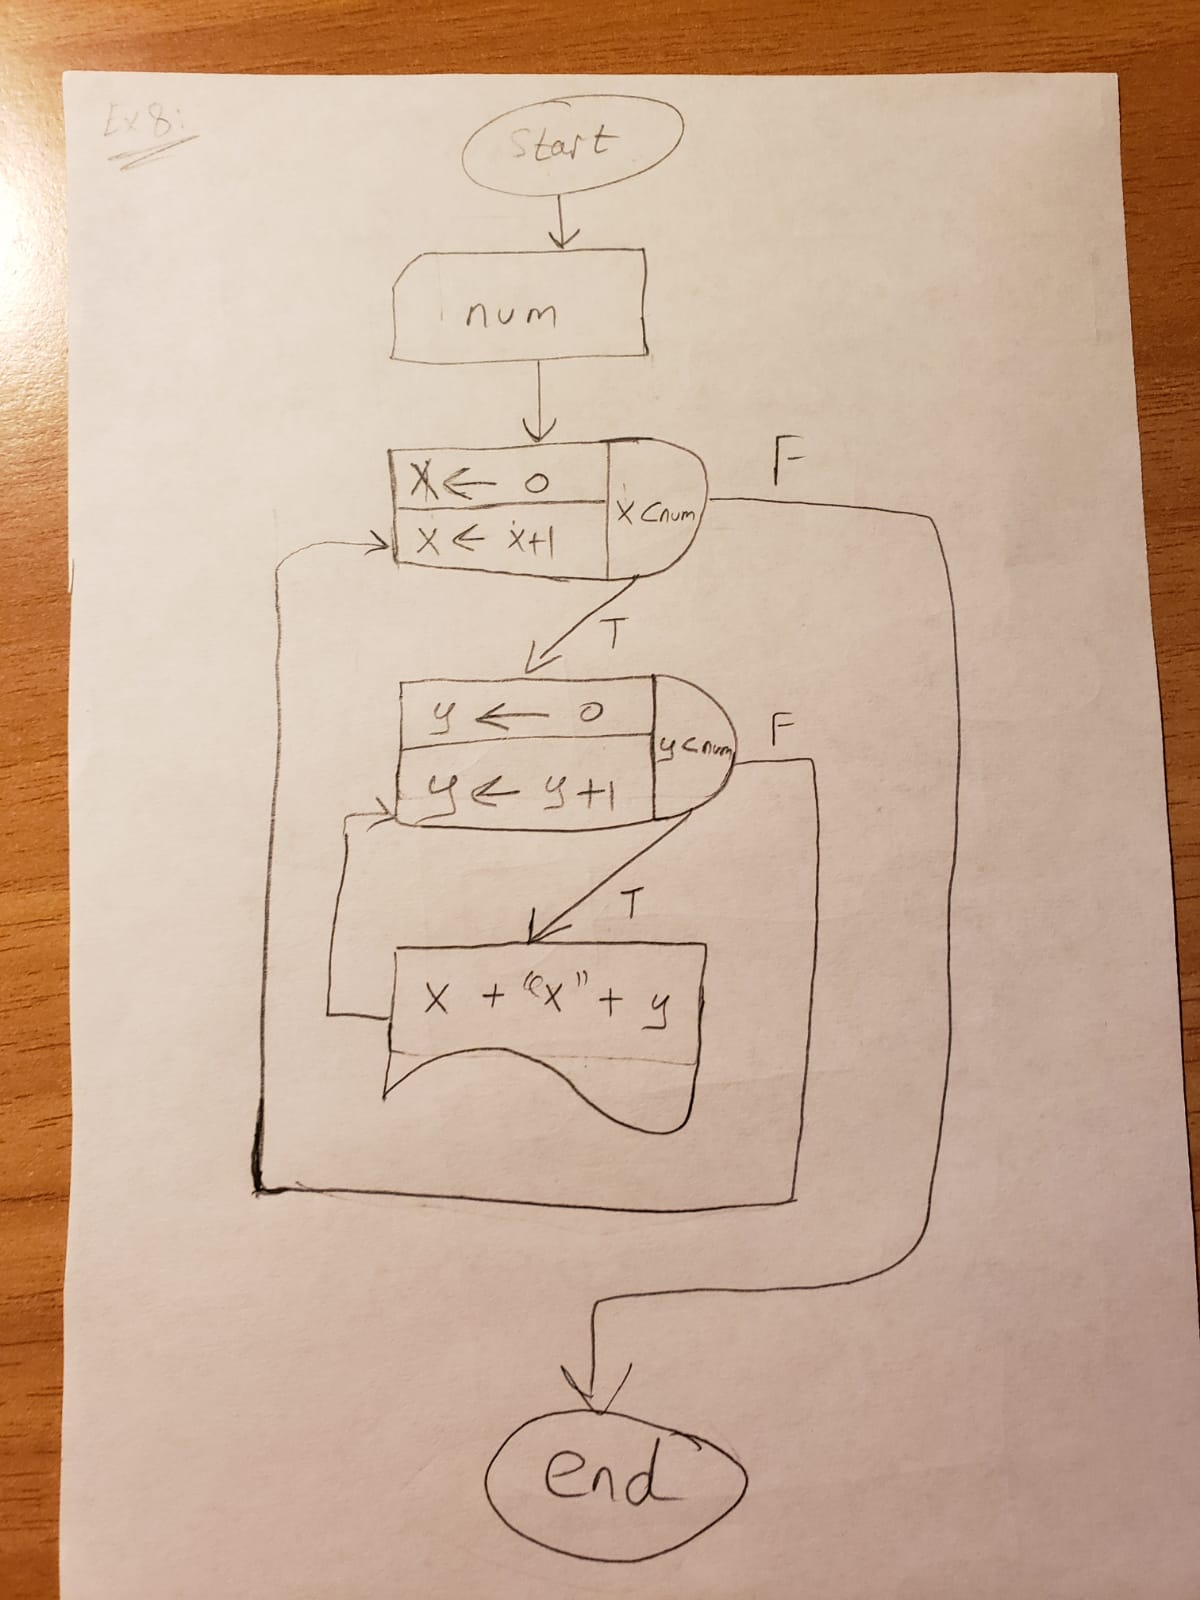 Ex 8:
Start
num
x ← 0
x ← x+1
x < num
F
T
y ← 0
y ← y+1
y < num
F
T
x + "x" + y
end